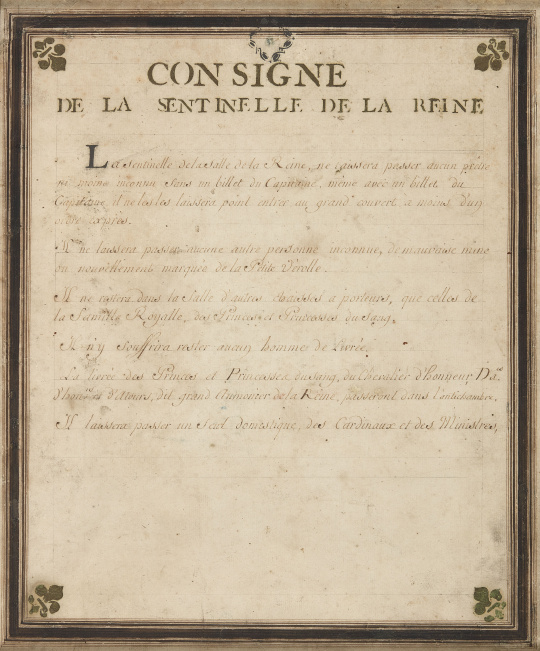 CONSIGNE
DE LA SENTINELLE DE LA REINE
La Sentinelle de la Salle de la Reine, ne laissera passer aucun prêtre
ni moine inconnu sans un billet du Capitaine, même avec un billet du
Capitaine il ne les laissera point entrer au grand couvert à moins d'un
ordre exprès.
Il ne laissera passer aucune autre personne inconnue, de mauvaise mine
ou nouvellement marquée de la Petite Vérolle.
Il ne restera dans la Salle d'autres chaises à porteurs, que celles de
la Famille Royalle, des Princes et Princesses du Sang.
Il n'y souffrira rester aucun homme de Livrée.
La livrée des Princes et Princesses du sang, du Chevalier d'honneur,
et d'Atours, du grand Aumonier de la Reine, passeront dans l'antichambre.
Il laissera passer un seul domestique, des Cardinaux et des Ministres,